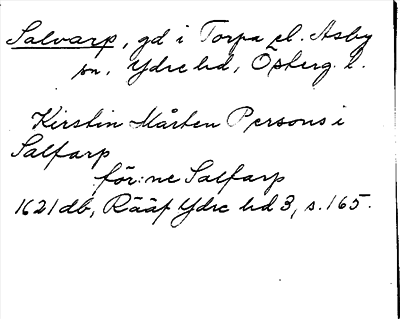 Salvarp, gd i Torpa el. Asby
sn, Ydre hd, Österg. l.
Kirstin Mårten Persons i
Salfarp
för:ne Salfarp
1621 db, Rääf Ydre hd 3, s. 165.